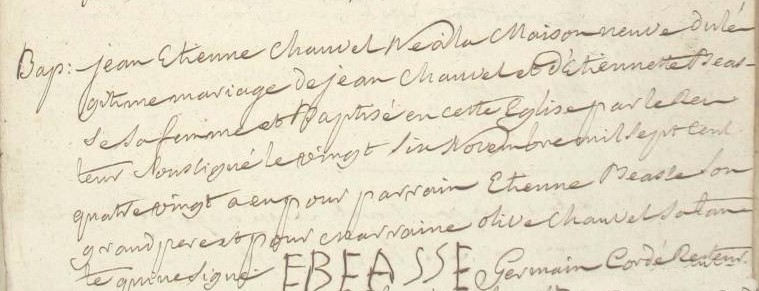 Bap: jean Etienne Chauvel Né a la Maison neuve du lé
gitime mariage de jean Chauvel et d'Etiennette Beas-
se sa femme et Baptisé en cette Eglise par le Rec
teur Soussigné le vingt six Novembre mil sept cent
quatre vingt a eu pour parrain Etienne Beasse son
grand pere et pour marraine olive Chauvel sa tan
te qui ne signe EBEASSE Germain Cordé Recteur